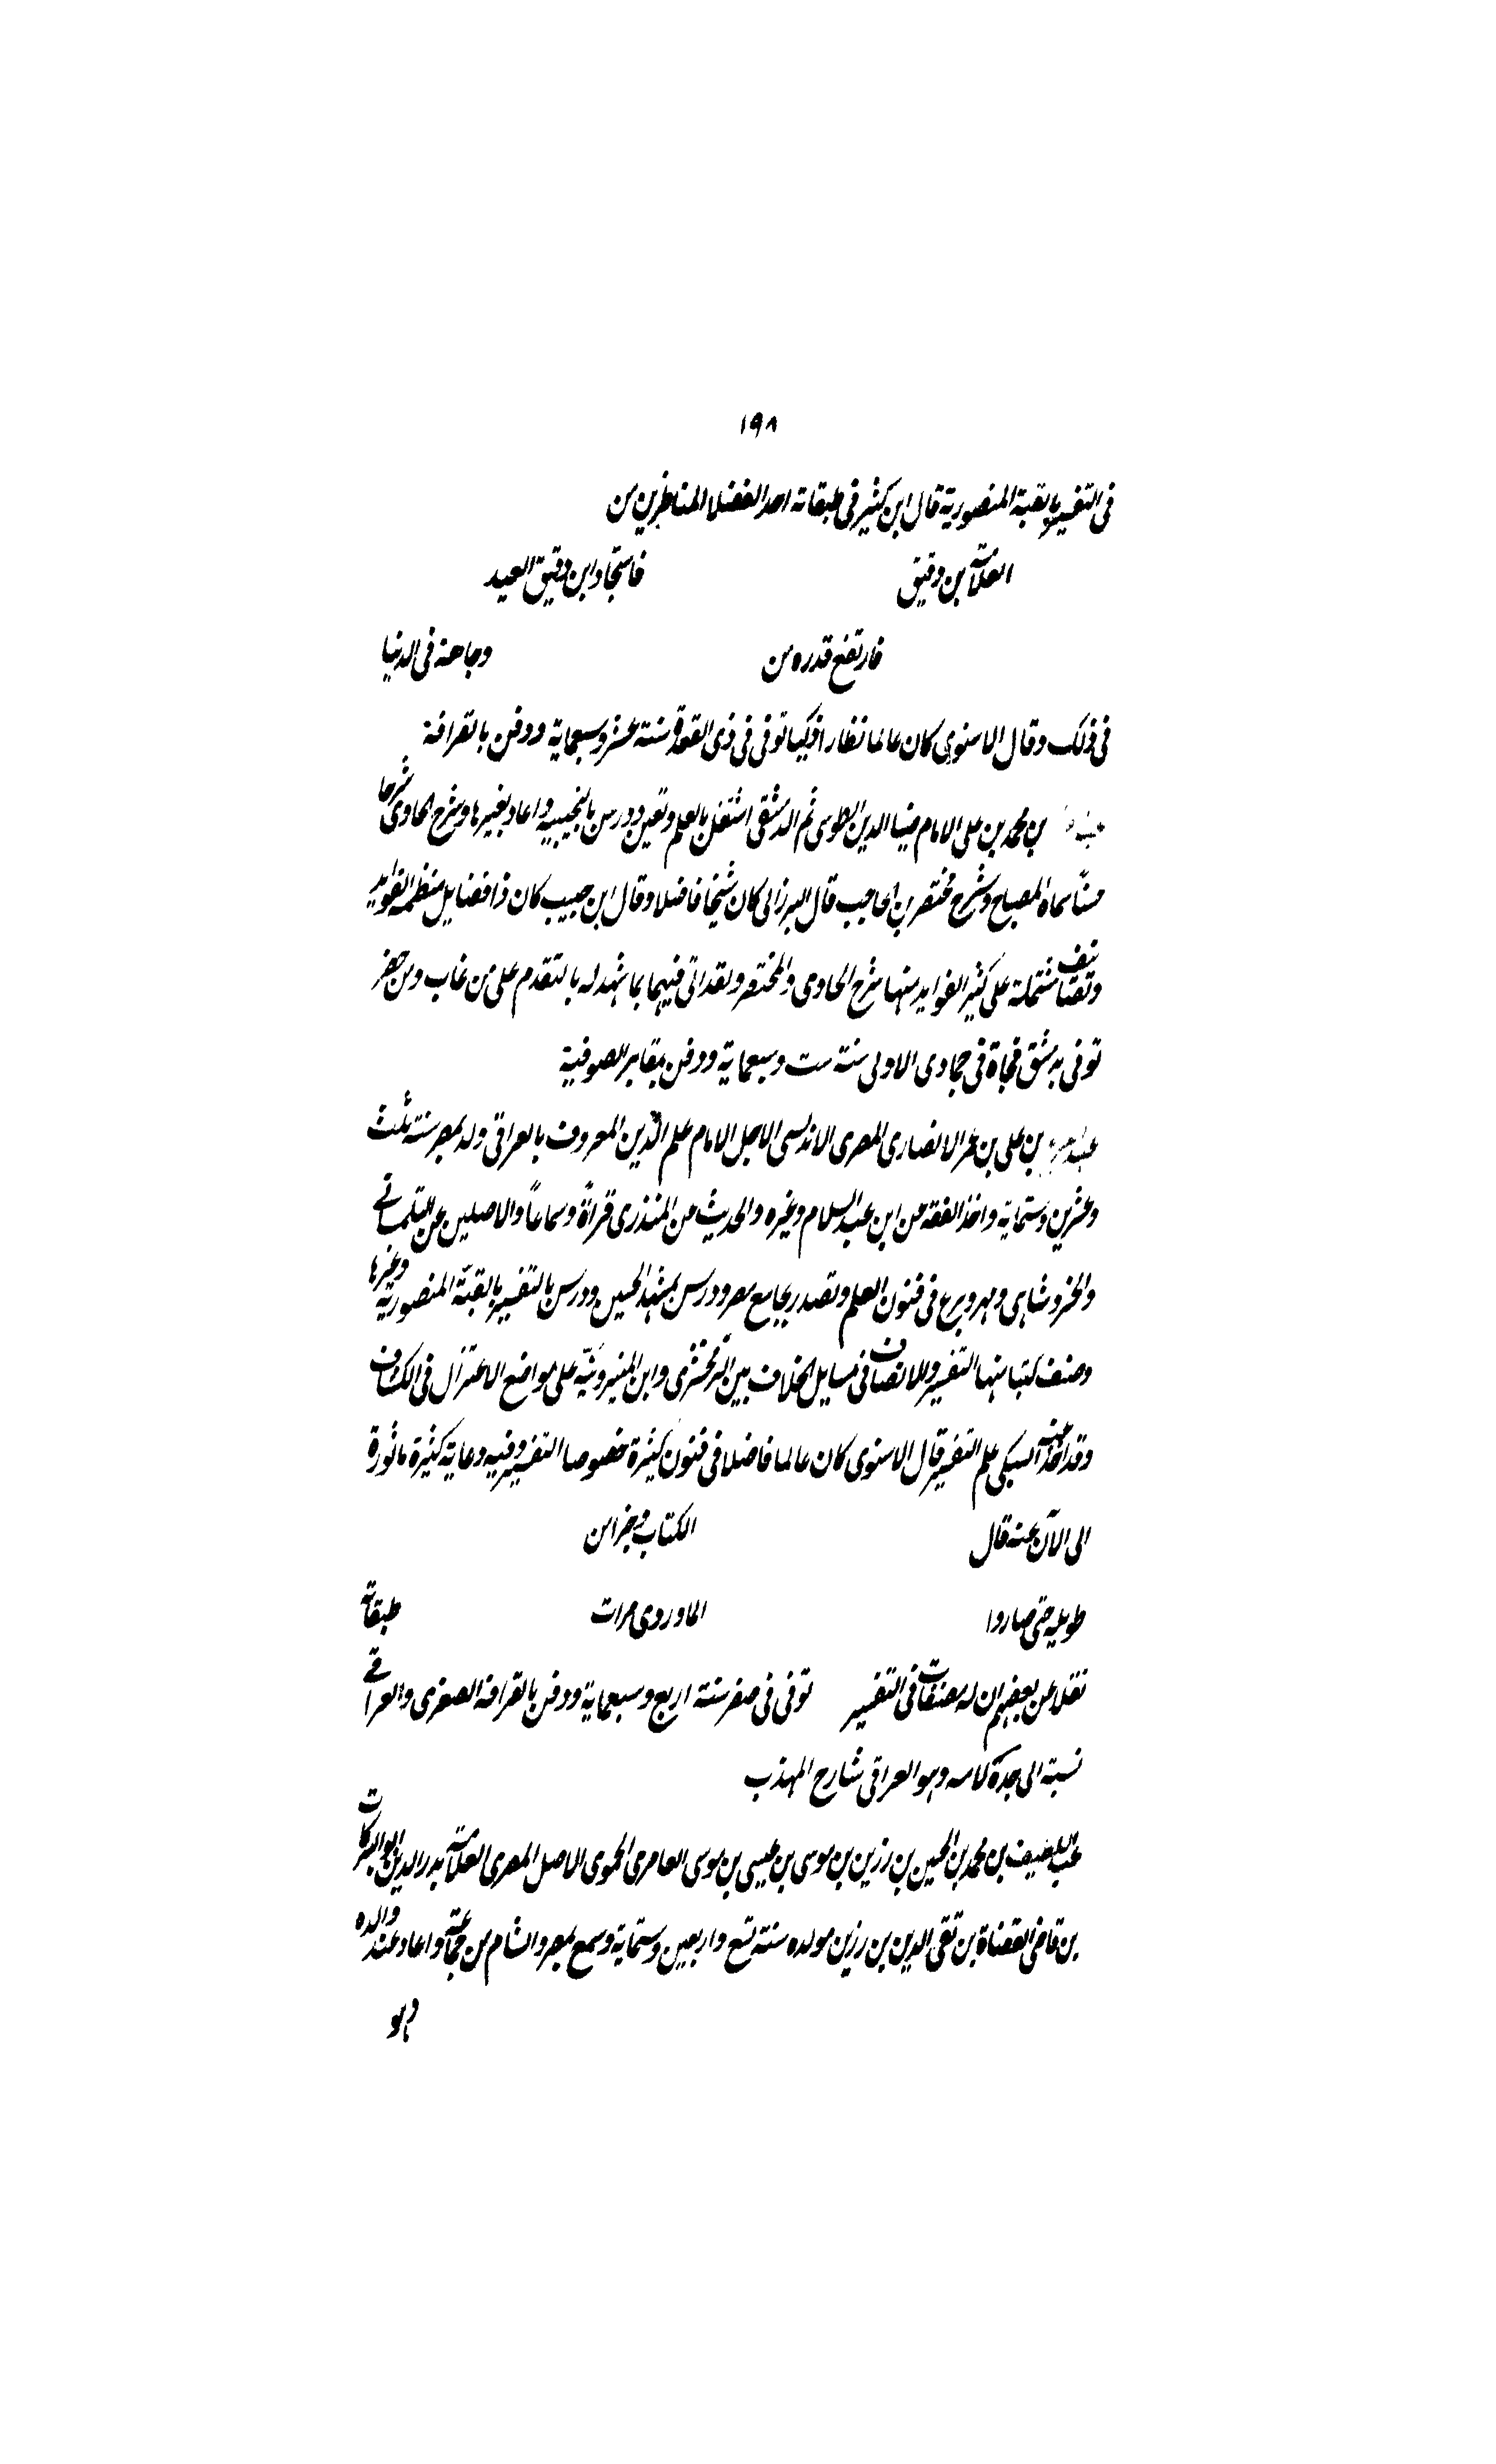 ١٩٨
فى التفسير بالقبة المنصورية قال ابن كثير فى طبقاته احد الفضلا المناظرين من
العلامة بن دقيق فاستجاد ابن دقيق العيد
فارتفع قدره من وجاهة فى الدنيا
فى ذلك وقال الاسنوى كان عالما نظارا ذكيا توفى فى ذى القعدة سنة عشر وسبعماية ودفن بالقرافة
بن محمد بن على الامام ضيا الدين الطوسى ثم الدمشقى اشتغل بالعلم وتعين ودرس بالنجيبية واعاد بغيرها وشرح الحاوى شرحا
حسنا سماه المصباح وشرح مختصر بن الحاجب قال البرزالى كان شيخا فاضلا وقال ابن حبيب كان ذا فضايل منظمة الفوايد
وتصانيف مشتملة على كثير الفوايد منها شرح الحاوى والمختصر ولقد اتى فيهما بما شهد له بالتقدم على من غاب ومن حضر
توفى بدمشق فجاة فى جمادى الاولى سنة ست وسبعماية ودفن بمقابر الصوفية
بن على بن عمر الانصارى المصرى الاندلسى الاصل الامام علم الدين المعروف بالعراقى ولد بمصر سنة ثلث
وعشرين وستماية واخذ الفقه من ابن عبد السلام وغيره والحديث من المنذرى قراة وسماعا والاصلين عن التلمسانى
والخسروشاهى ومهر وبرع فى فنون العلم وتصدر بجامع مصر ودرس بمشهد الحسين ودرس بالتفسير بالقبة المنصورية وغيرها
وصنف كتبا منها التفسير والانصاف فى مسايل الخلاف بين الزمخشرى وابن المنير ونبه على مواضع الاعتزال فى الكشاف
وقد اخذ عنه السبكى علم التفسير قال الاسنوى كان عالما فاضلا فى فنون كثيرة خصوصا التفسير وفيه دعاية كثيرة ماثورة
الى الآن عنه قال الكتاب وجزا من
طويله حتى صاروا الماوردى مرات طبقاته
نقلا عن بعضهم ان له مصنفات فى التفسير توفى فى صفر سنة اربع وسبعماية ودفن بالقرافة الصغرى والعراقى
نسبة الى جده لامه وهو العراقى شارح المهذب
عبد اللطيف بن محمد بن الحسين بن رزين بن موسى بن عيسى بن موسى العامرى الحموى الاصل المصرى العلامة بدر الدين ابو البركات
بن قاضى القضاة بن تقى الدين بن رزين مولده سنة تسع واربعين وستماية وسمع بمصر والشام من جماعة واعاد عند والده
وهو